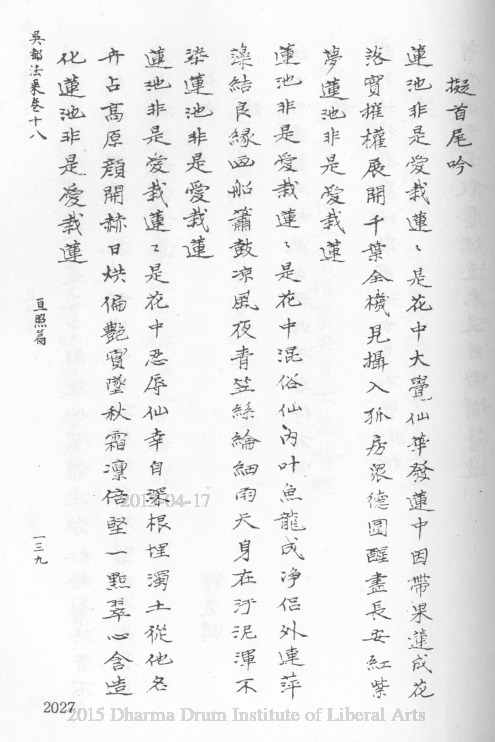 擬首尾吟
蓮池非是愛栽蓮〻是花中大覺仙華發蓮中因帶果蓮成花
落實摧權展開千葉全機見攝入孤房眾德圓醒盡長安紅紫
夢蓮池非是愛栽蓮
蓮池非是愛栽蓮〻是花中混俗仙內叶魚龍成淨侶外連萍
藻結良緣画船簫鼓涼風夜青笠絲綸細雨天身在汙泥渾不
染蓮池非是愛栽蓮
蓮池非是愛栽蓮〻是花中忍辱仙幸自深根埋濁土從他名
卉占高原顏開赫日烘偏艷實墜秋霜凜倍堅一點翠心含造
化蓮池非是愛栽蓮
吳都法乘卷十八
亘照篇
一三九
2012-04-17
2027
2015 Dharma Drum Institute of Liberal Arts